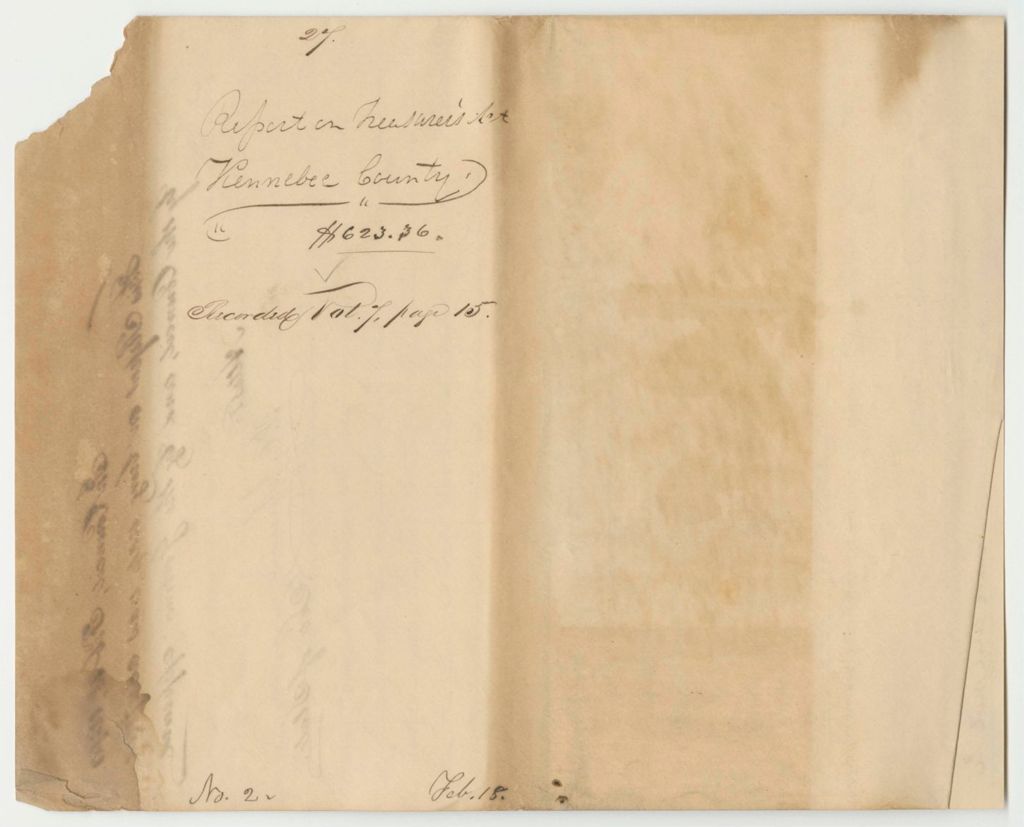 27.
Report on Treasurer's Act
Kennebec County.
"
" $623.36.
Recorded Vol. 7, page 15.
No. 2. Feb. 18.